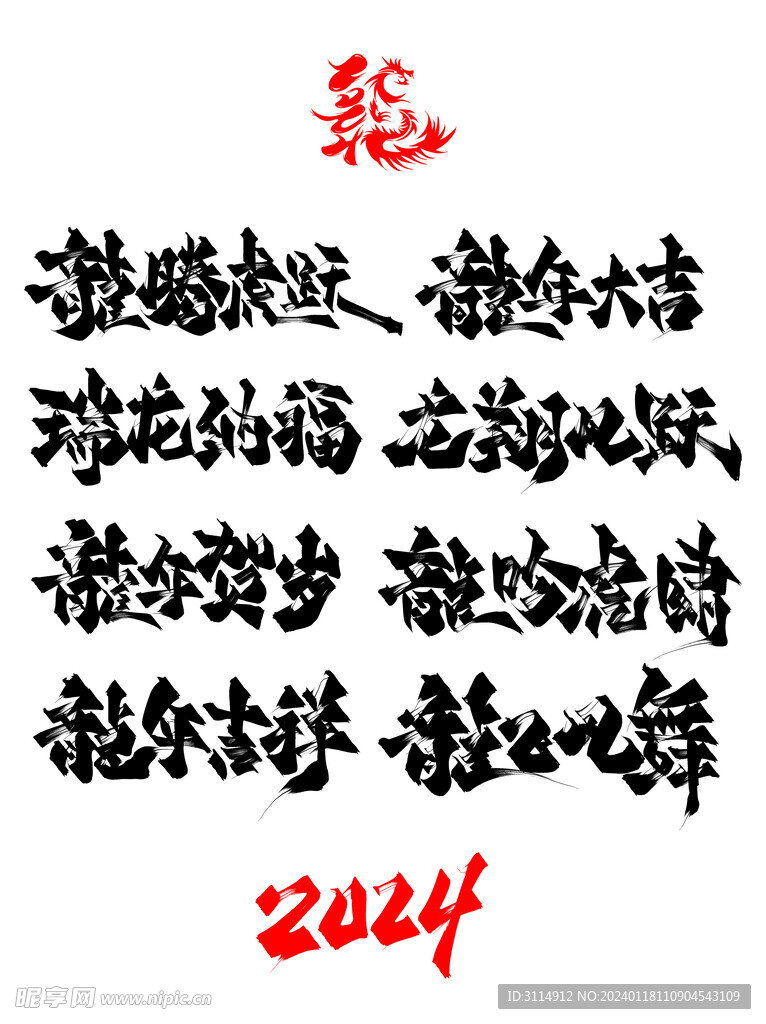 龍
龍腾虎跃 龍年大吉
瑞龙纳福 龙翔凤跃
龍年贺岁 龍吟虎啸
龍年吉祥 龍飞凤舞
2024
昵享网 www.nipic.cn
ID:3114912 NO:20240118110904543109